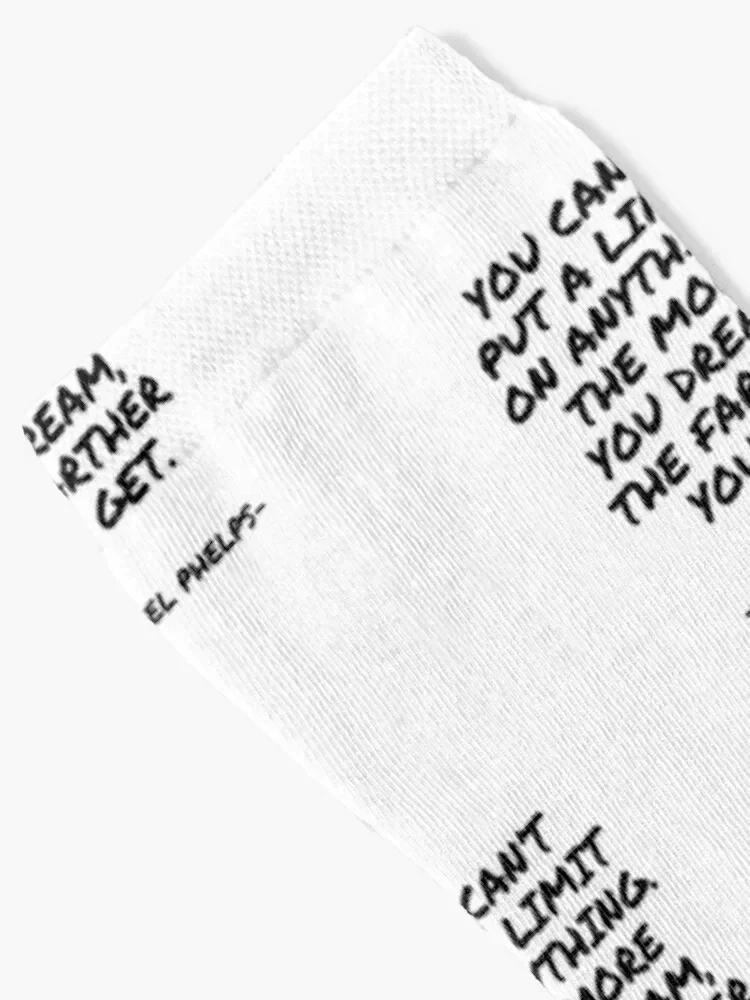 YOU CAN
PUT A LI
ON ANYTH
THE MO
YOU DREA
THE FAR
YOU
REAM,
RTHER
GET.
EL PHELPS-
CAN'T
LIMIT
THING.
MORE
AM,
ER